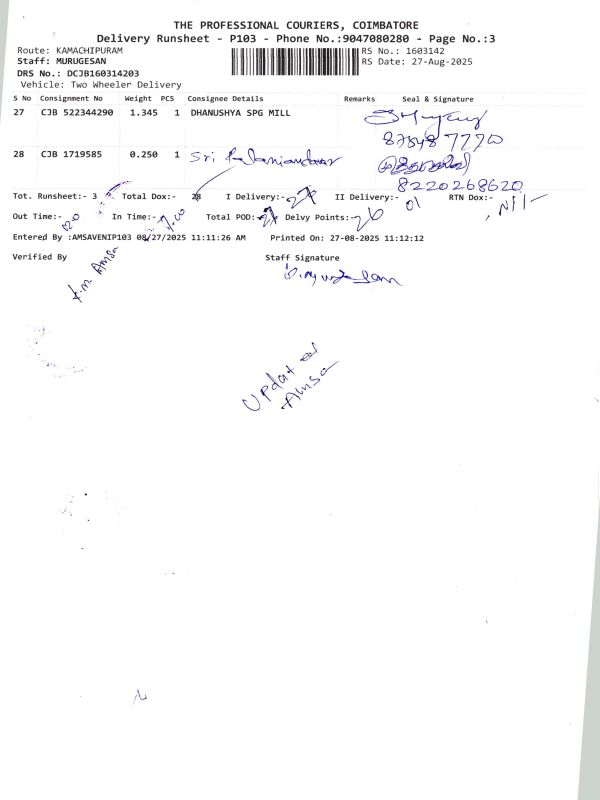 THE PROFESSIONAL COURIERS, COIMBATORE
Delivery Runsheet - P103 - Phone No.:9047080280 - Page No.:3
Route: KAMACHIPURAM
RS No.: 1603142
Staff: MURUGESAN
RS Date: 27-Aug-2025
DRS No.: DCJB160314203
Vehicle: Two Wheeler Delivery
S No Consignment No Weight PCS Consignee Details Remarks Seal & Signature
27 CJB 522344290 1.345 1 DHANUSHYA SPG MILL
87548 7770
28 CJB 1719585 0.250 1 Sri
8220268620
Tot. Runsheet:- 3 Total Dox:- 28 I Delivery:- 27 II Delivery:- 01 RTN Dox:- Nil
Out Time:- In Time:- 7.00 Total POD:- Delvy Points:- 26
Entered By :AMSAVENIP103 08/27/2025 11:11:26 AM Printed On: 27-08-2025 11:12:12
Verified By Staff Signature
K.M. Amsa
Updated
Amsa